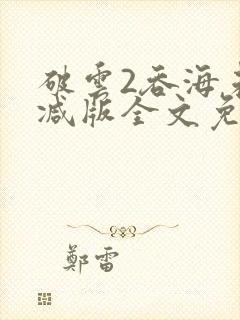 破雲2吞海
减版全文免
鄭雷